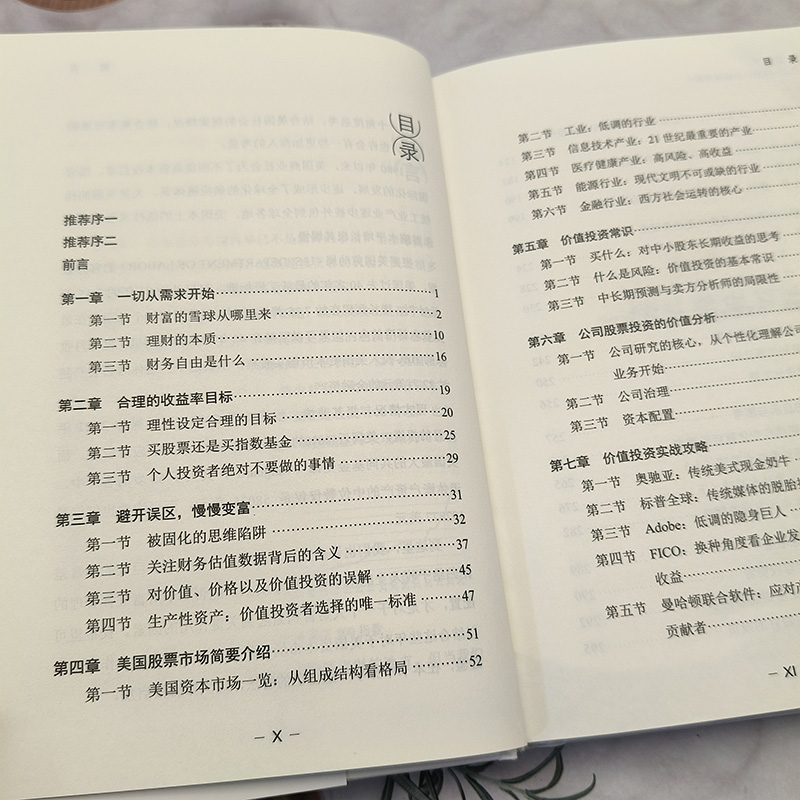 目录
推荐序一
推荐序二
前言
第一章 一切从需求开始……1
第一节 财富的雪球从哪里来……2
第二节 理财的本质……10
第三节 财务自由是什么……16
第二章 合理的收益率目标……19
第一节 理性设定合理的目标……20
第二节 买股票还是买指数基金……25
第三节 个人投资者绝对不要做的事情……29
第三章 避开误区，慢慢变富……31
第一节 被固化的思维陷阱……32
第二节 关注财务估值数据背后的含义……37
第三节 对价值、价格以及价值投资的误解……45
第四节 生产性资产：价值投资者选择的唯一标准……47
第四章 美国股票市场简要介绍……51
第一节 美国资本市场一览：从组成结构看格局……52
– X –
目 录
第二节 工业：低调的行业……
第三节 信息技术产业：21世纪最重要的产业……
第四节 医疗健康产业：高风险、高收益……
第五节 能源行业：现代文明不可或缺的行业……
第六节 金融行业：西方社会运转的核心……
第五章 价值投资常识……
第一节 买什么：对中小股东长期收益的思考……
第二节 什么是风险：价值投资的基本常识……
第三节 中长期预测与卖方分析师的局限性……
第六章 公司股票投资的价值分析……
第一节 公司研究的核心，从个性化理解公司
业务开始……
第二节 公司治理……
第三节 资本配置……
第七章 价值投资实战攻略……
第一节 奥驰亚：传统美式现金奶牛……
第二节 标普全球：传统媒体的脱胎
第三节 Adobe：低调的隐身巨人……
第四节 FICO：换种角度看企业发
收益……
第五节 曼哈顿联合软件：应对
贡献者……
– XI